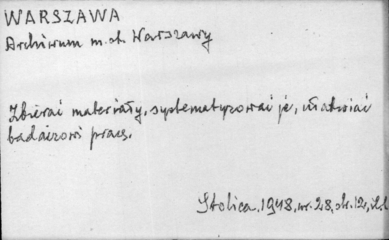 WARSZAWA
Archiwum m.st. Warszawy
Zbierać materiały, systematyzować je, ułatwiać
badaczowi pracę.
Stolica. 1948, nr. 28, str. 12, il.